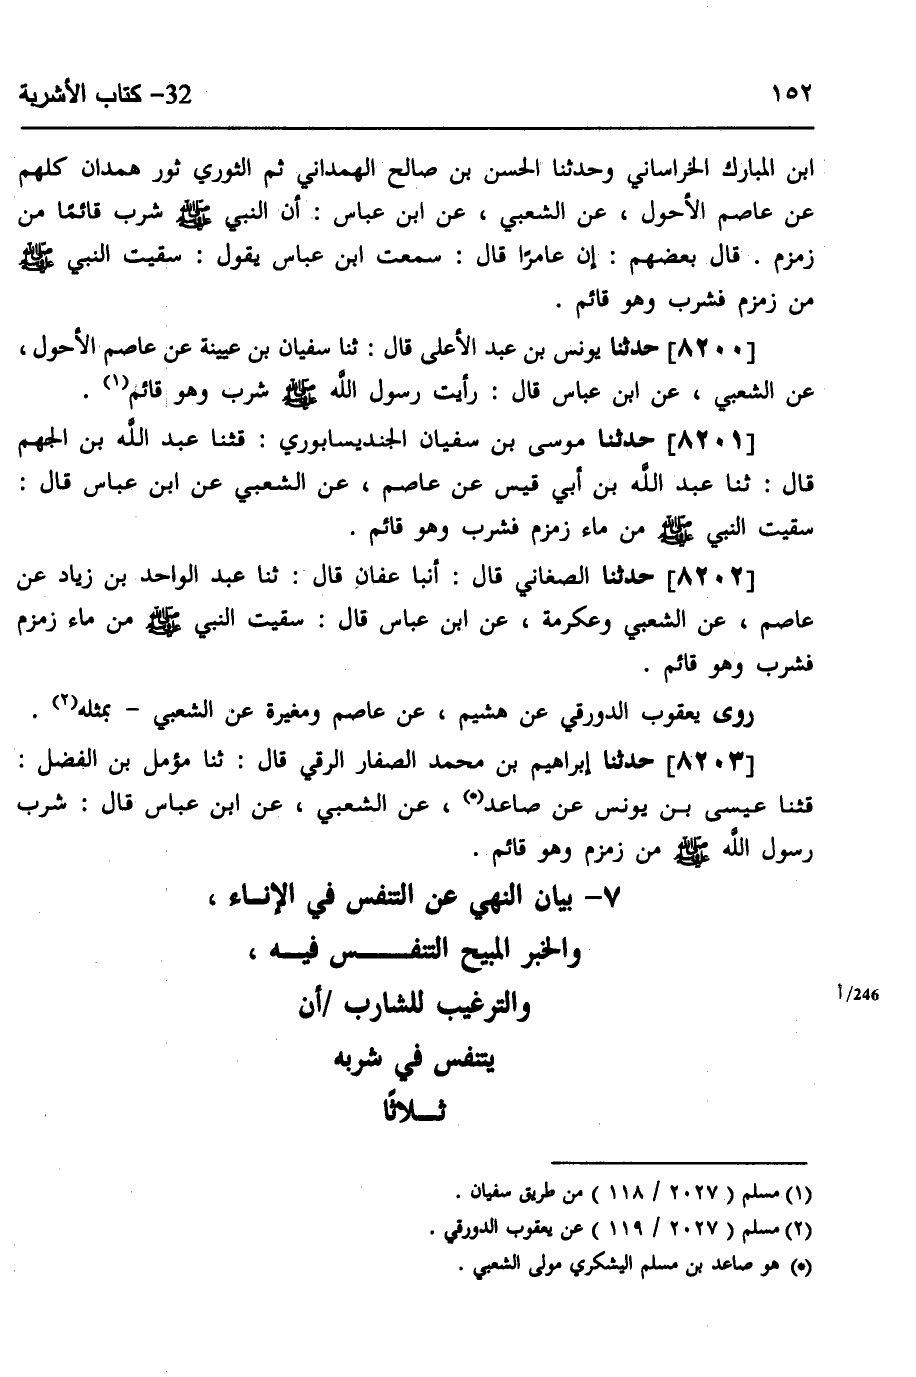 ١٥٢
32- كتاب الأشربة
ابن المبارك الخراساني وحدثنا الحسن بن صالح الهمداني ثم الثوري ثور همدان كلهم
عن عاصم الأحول ، عن الشعبي ، عن ابن عباس : أن النبي ﷺ شرب قائمًا من
زمزم . قال بعضهم : إن عامرًا قال : سمعت ابن عباس يقول : سقيت النبي ﷺ
من زمزم فشرب وهو قائم .
[٨٢٠٠] حدثنا يونس بن عبد الأعلى قال : ثنا سفيان بن عيينة عن عاصم الأحول ،
عن الشعبي ، عن ابن عباس قال : رأيت رسول اللَّه ﷺ شرب وهو قائم(١) .
[٨٢٠١] حدثنا موسى بن سفيان الجنديسابوري : قثنا عبد اللَّه بن الجهم
قال : ثنا عبد اللَّه بن أبي قيس عن عاصم ، عن الشعبي عن ابن عباس قال :
سقيت النبي ﷺ من ماء زمزم فشرب وهو قائم .
[٨٢٠٢] حدثنا الصغاني قال : أنبا عفان قال : ثنا عبد الواحد بن زياد عن
عاصم ، عن الشعبي وعكرمة ، عن ابن عباس قال : سقيت النبي ﷺ من ماء زمزم
فشرب وهو قائم .
روى يعقوب الدورقي عن هشيم ، عن عاصم ومغيرة عن الشعبي – بمثله(٢) .
[٨٢٠٣] حدثنا إبراهيم بن محمد الصفار الرقي قال : ثنا مؤمل بن الفضل :
قثنا عيسى بن يونس عن صاعد(*) ، عن الشعبي ، عن ابن عباس قال : شرب
رسول اللَّه ﷺ من زمزم وهو قائم .
٧- بيان النهي عن التنفس في الإناء ،
والخبر المبيح التنفس فيه ،
والترغيب للشارب /أن
246/أ
يتنفس في شربه
ثلاثًا
(١) مسلم ( ٢٠٢٧ / ١١٨ ) من طريق سفيان .
(٢) مسلم ( ٢٠٢٧ / ١١٩ ) عن يعقوب الدورقي .
(*) هو صاعد بن مسلم اليشكري مولى الشعبي .